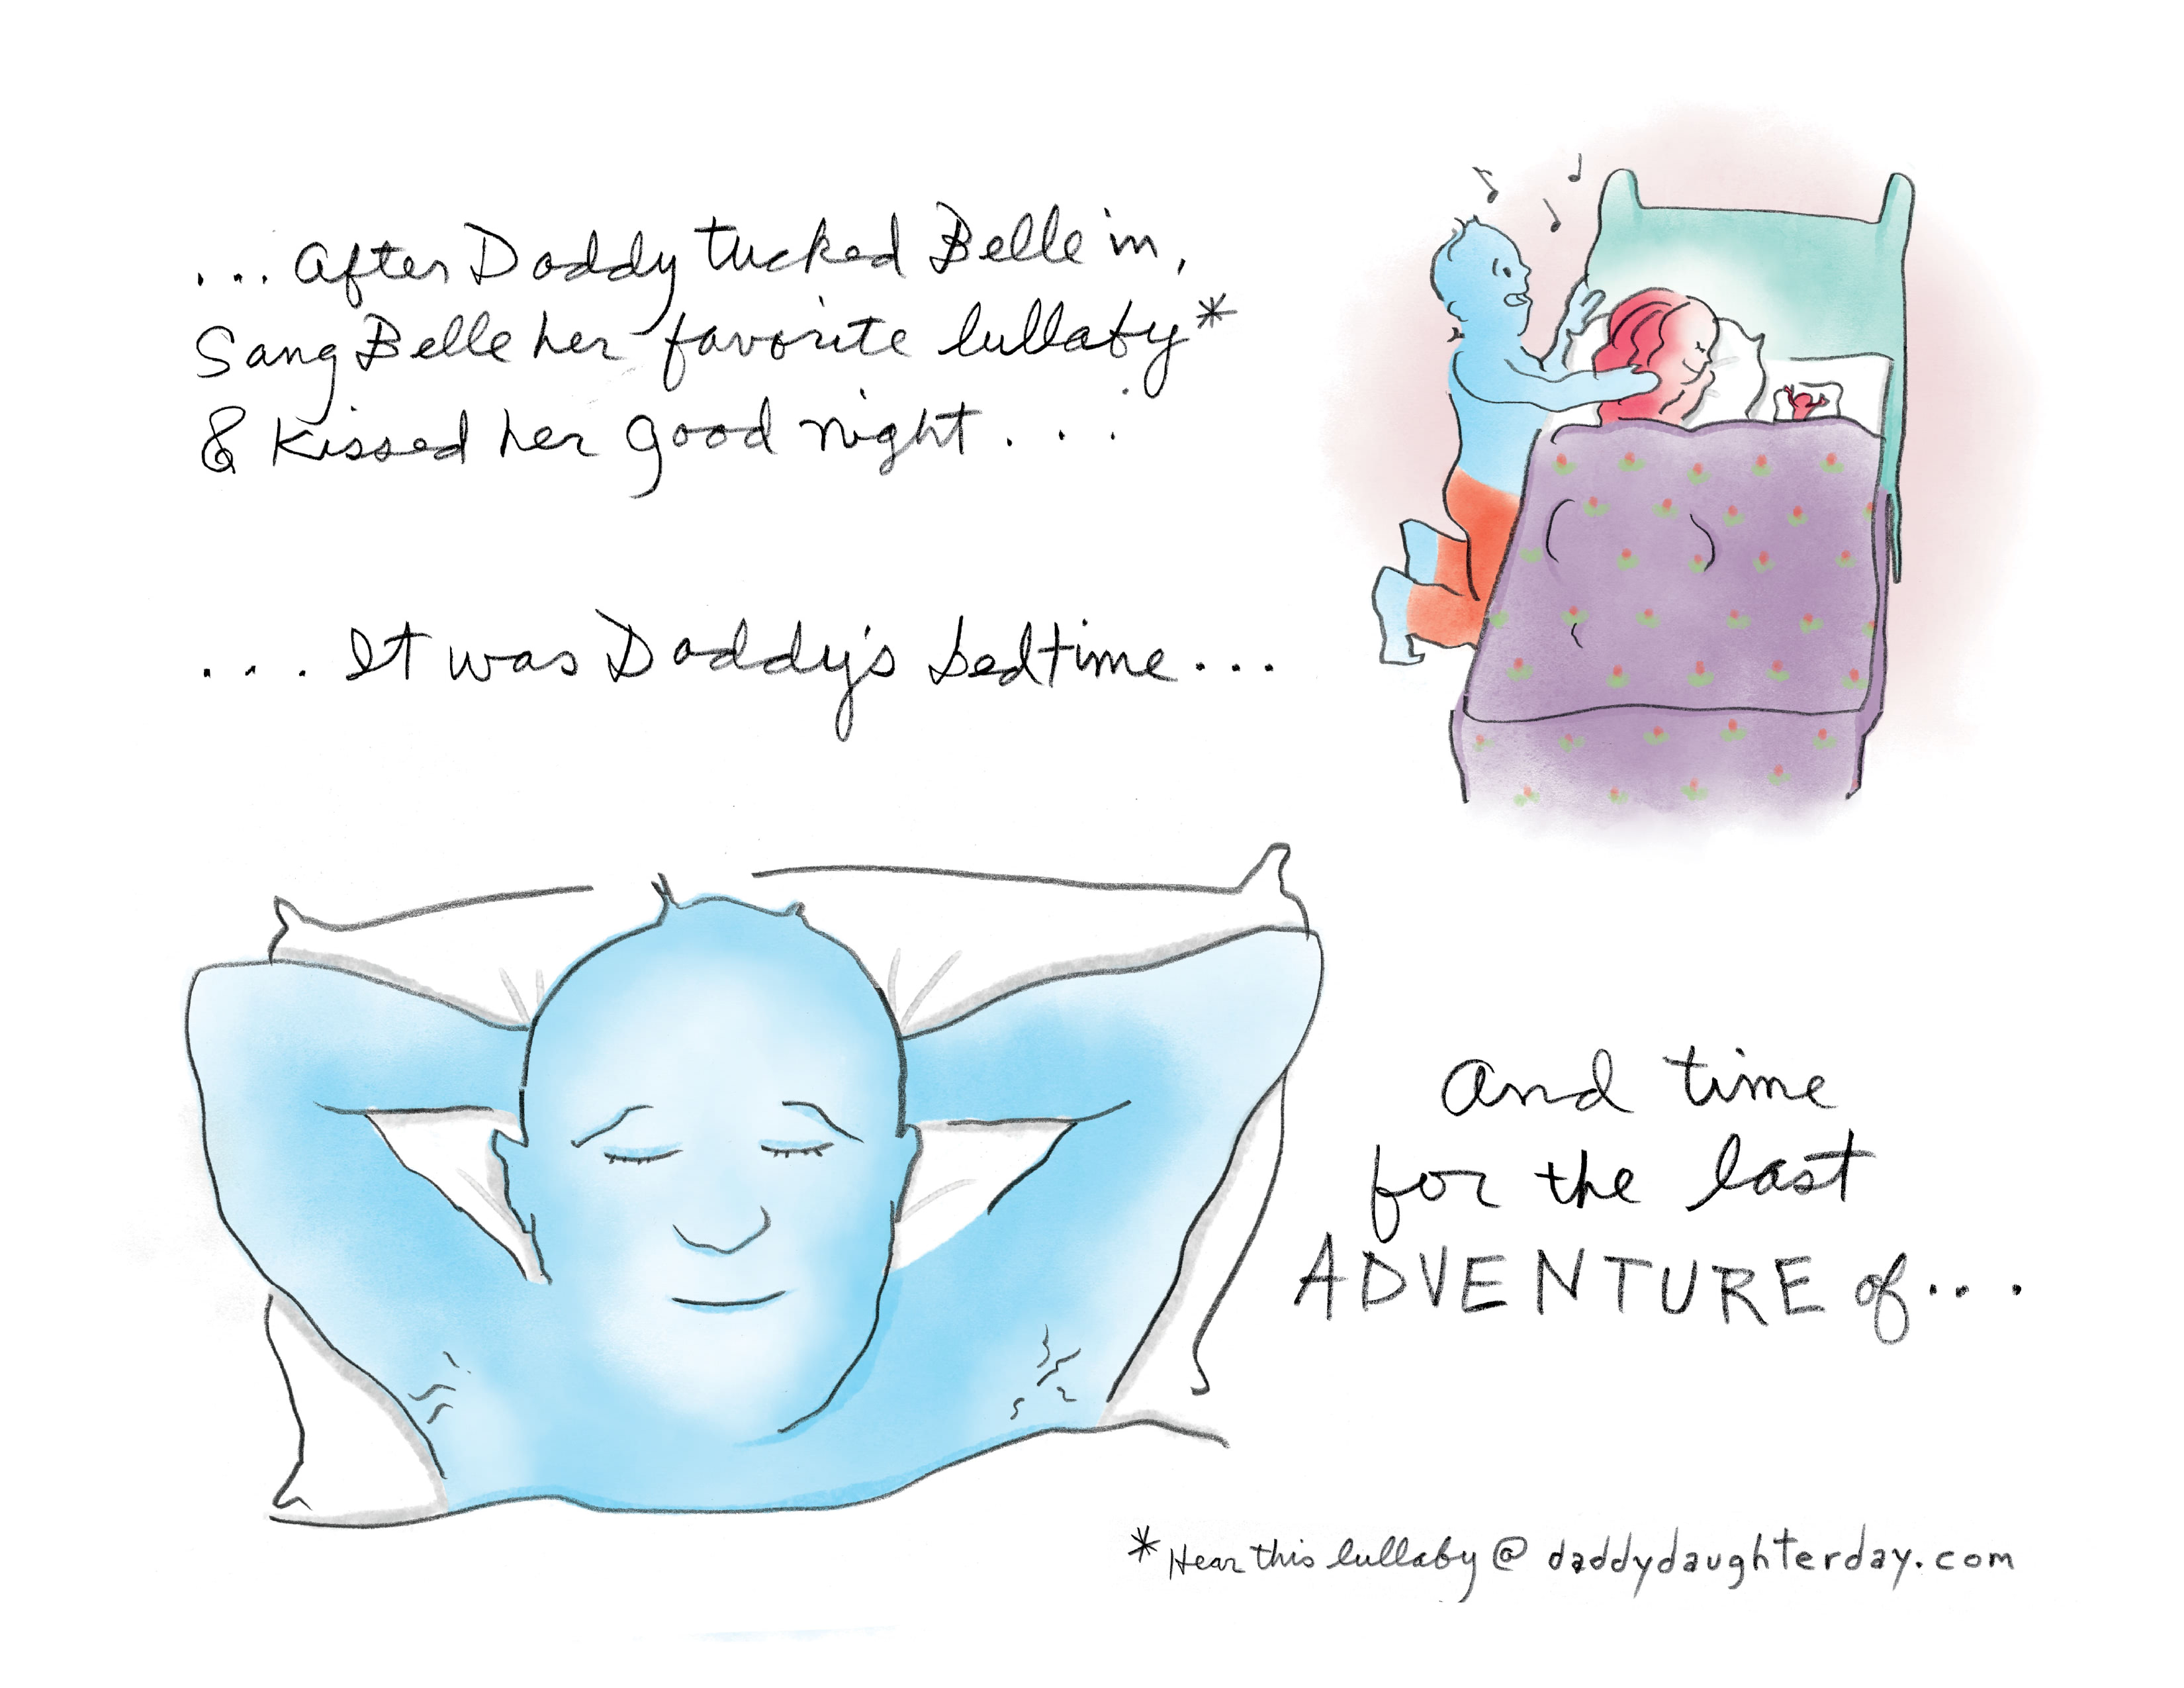 ... After Daddy tucked Belle in,
Sang Belle her favorite lullaby*
& Kissed her good night...
... It was Daddy's bedtime...
And time
for the last
ADVENTURE of...
*Hear this lullaby @ daddydaughterday.com